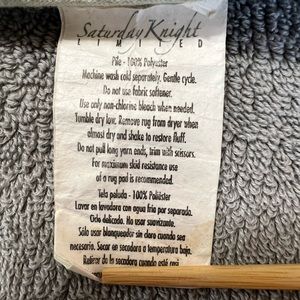 Saturday Knight
LIMITED
Pile - 100% Polyester
Machine wash cold separately. Gentle cycle.
Do not use fabric softener.
Use only non-chlorine bleach when needed.
Tumble dry low. Remove rug from dryer when
almost dry and shake to restore fluff.
Do not pull long yarn ends, trim with scissors.
For maximum skid resistance use
of a rug pad is recommended.
Tela peluda - 100% Poliéster
Lavar en lavadora con agua fría por separado.
Ciclo delicado. No usar suavizante.
Sólo usar blanqueador sin cloro cuando sea
necesario. Secar en secadora a temperatura baja.
Retirar de la secadora cuando esté casi